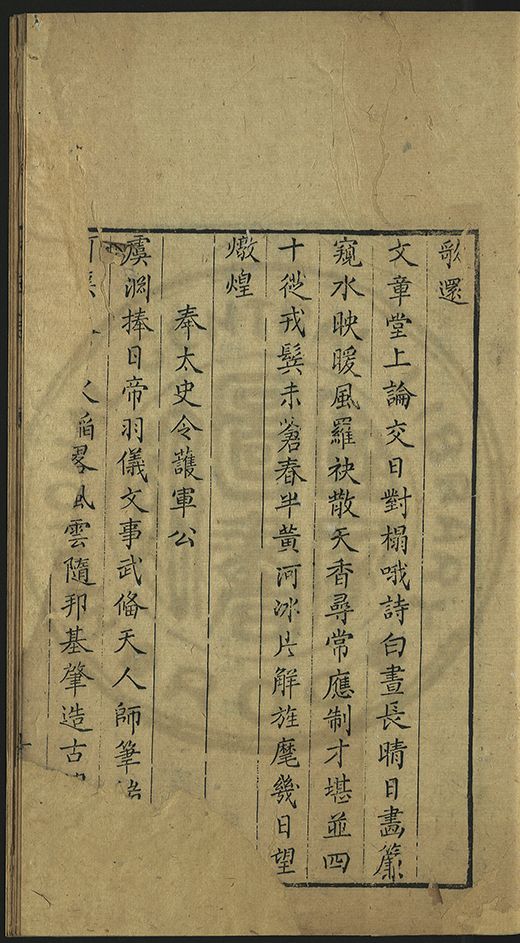 歌還
文章堂上論交日對榻哦詩白晝長晴日畫簾
窺水映暖風羅袂散天香尋常應制才堪並四
十從戎鬂未蒼春半黃河冰片解旌麾幾日望
燉煌
奉太史令護軍公
虞淵捧日帝羽儀文事武俻天人師筆
韜畧風雲隨邦基肇造古